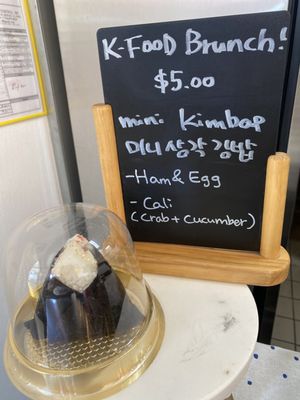 K-FOOD Brunch!
$5.00
mini Kimbap
미니 삼각 김밥
- Ham & Egg
- Cali
(Crab + Cucumber)